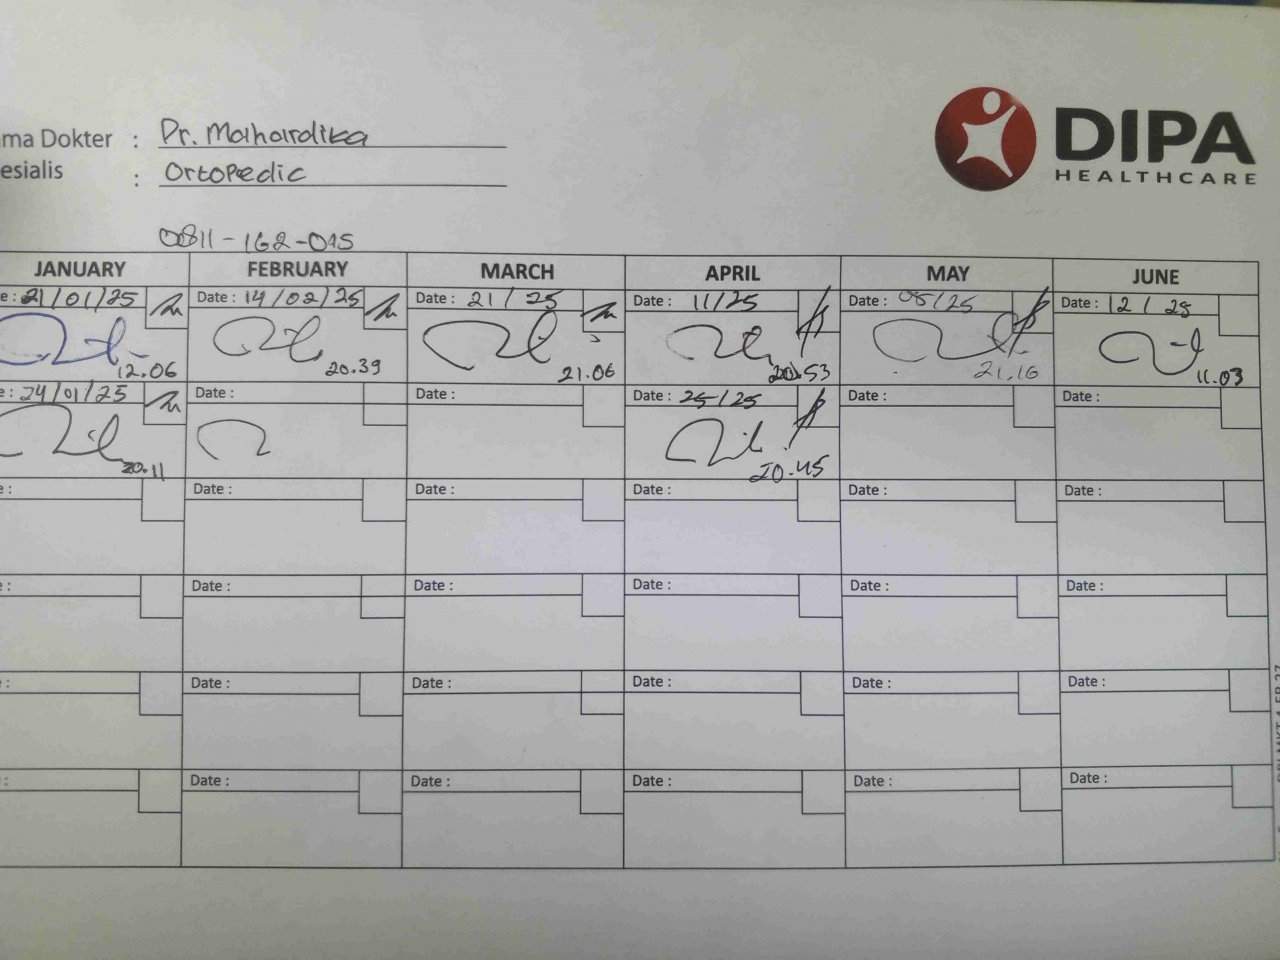 DIPA
HEALTHCARE
ma Dokter : Dr. Mahardika
esialis : Ortopedic
0811-162-015
JANUARY FEBRUARY MARCH APRIL MAY JUNE
e : 21/01/25 Date : 14/02/25 Date : 21/25 Date : 11/25 Date : 05/25 Date : 12/25
12.06 20.39 21.06 20.53 21.16 11.03
e : 24/01/25 Date : Date : Date : 25/25 Date : Date :
20.11 20.45
e : Date : Date : Date : Date : Date :
e : Date : Date : Date : Date : Date :
e : Date : Date : Date : Date : Date :
: Date : Date : Date : Date : Date :